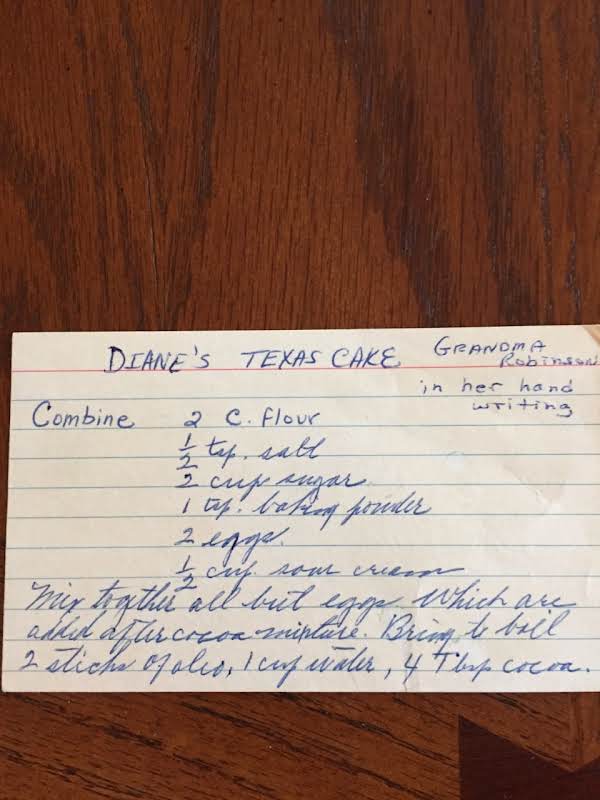 DIANE'S TEXAS CAKE GRANDMA Robinson
in her hand writing
Combine 2 C. flour
1/2 tsp. salt
2 cup sugar
1 tsp. baking powder
2 eggs.
1/2 cup sour cream
Mix together all but eggs. Which are
added after cocoa mixture. Bring to boil
2 sticks of oleo, 1 cup water, 4 Tbsp cocoa.